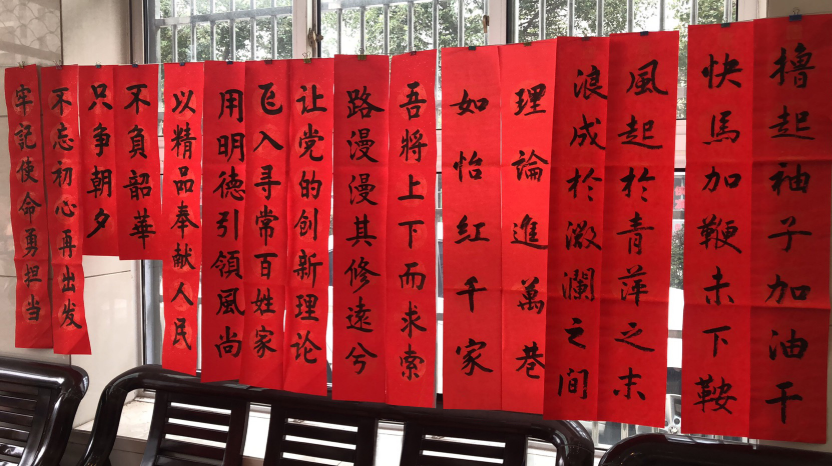 撸起袖子加油干
快馬加鞭未下鞍
風起於青萍之末
浪成於微瀾之间
理論進萬巷
如怡紅千家
吾將上下而求索
路漫漫其修遠兮
让党的创新理论
飞入寻常百姓家
用明德引領風尚
以精品奉献人民
不負韶華
只争朝夕
不忘初心再出发
牢記使命勇担当